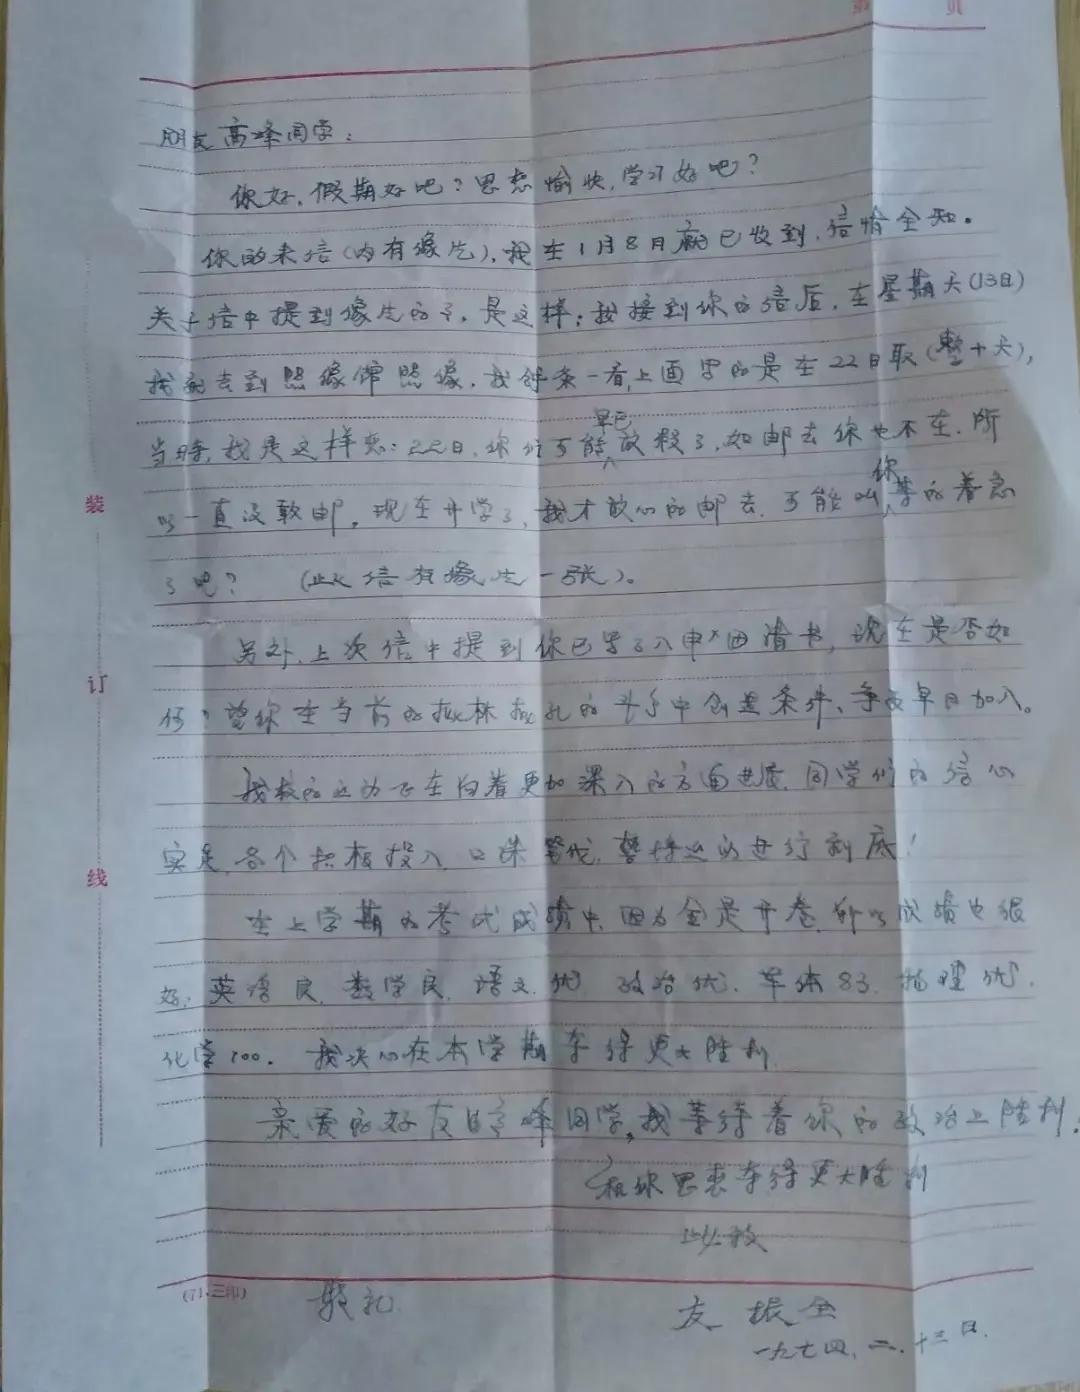 第 页
朋友高峰同学：
你好，假期好吧？思想愉快，学习好吧？
你的来信（内有像片），我在1月8月就已收到，信情全知。
关于信中提到像片的事，是这样：我接到你的信后，在星期天（13日）
我就去到照像馆照像，我条一看，上面写的是在22日取（整十天），
当时，我是这样想：22日，你们可能早已放假了，如邮去你也不在，所
以一直没敢邮，现在开学了，我才放心的邮去，可能叫你等的着急
了吧？ （此信有像片一张）。
另外，上次信中提到你已写了入申请书，现在是否如
何？望你在当前的批林批孔的斗争中创造条件、争取早日加入。
我校的运动正在向着更加深入的方面进展，同学们的信心
实足，各个积极投入，口诛笔伐，誓将进行到底！
在上学期的考试成绩中，因为全是开卷，所以成绩也很
好，英语良，数学良，语文优，政治优，军体83，物理优，
化学100。我决心在本学期夺得更大胜利
亲爱的好友高峰同学，我等待着你的政治上胜利，
和你思想夺得更大胜利
此致
敬礼
友 振全
一九七四，二，十三日，
装
订
线
(71.三印)